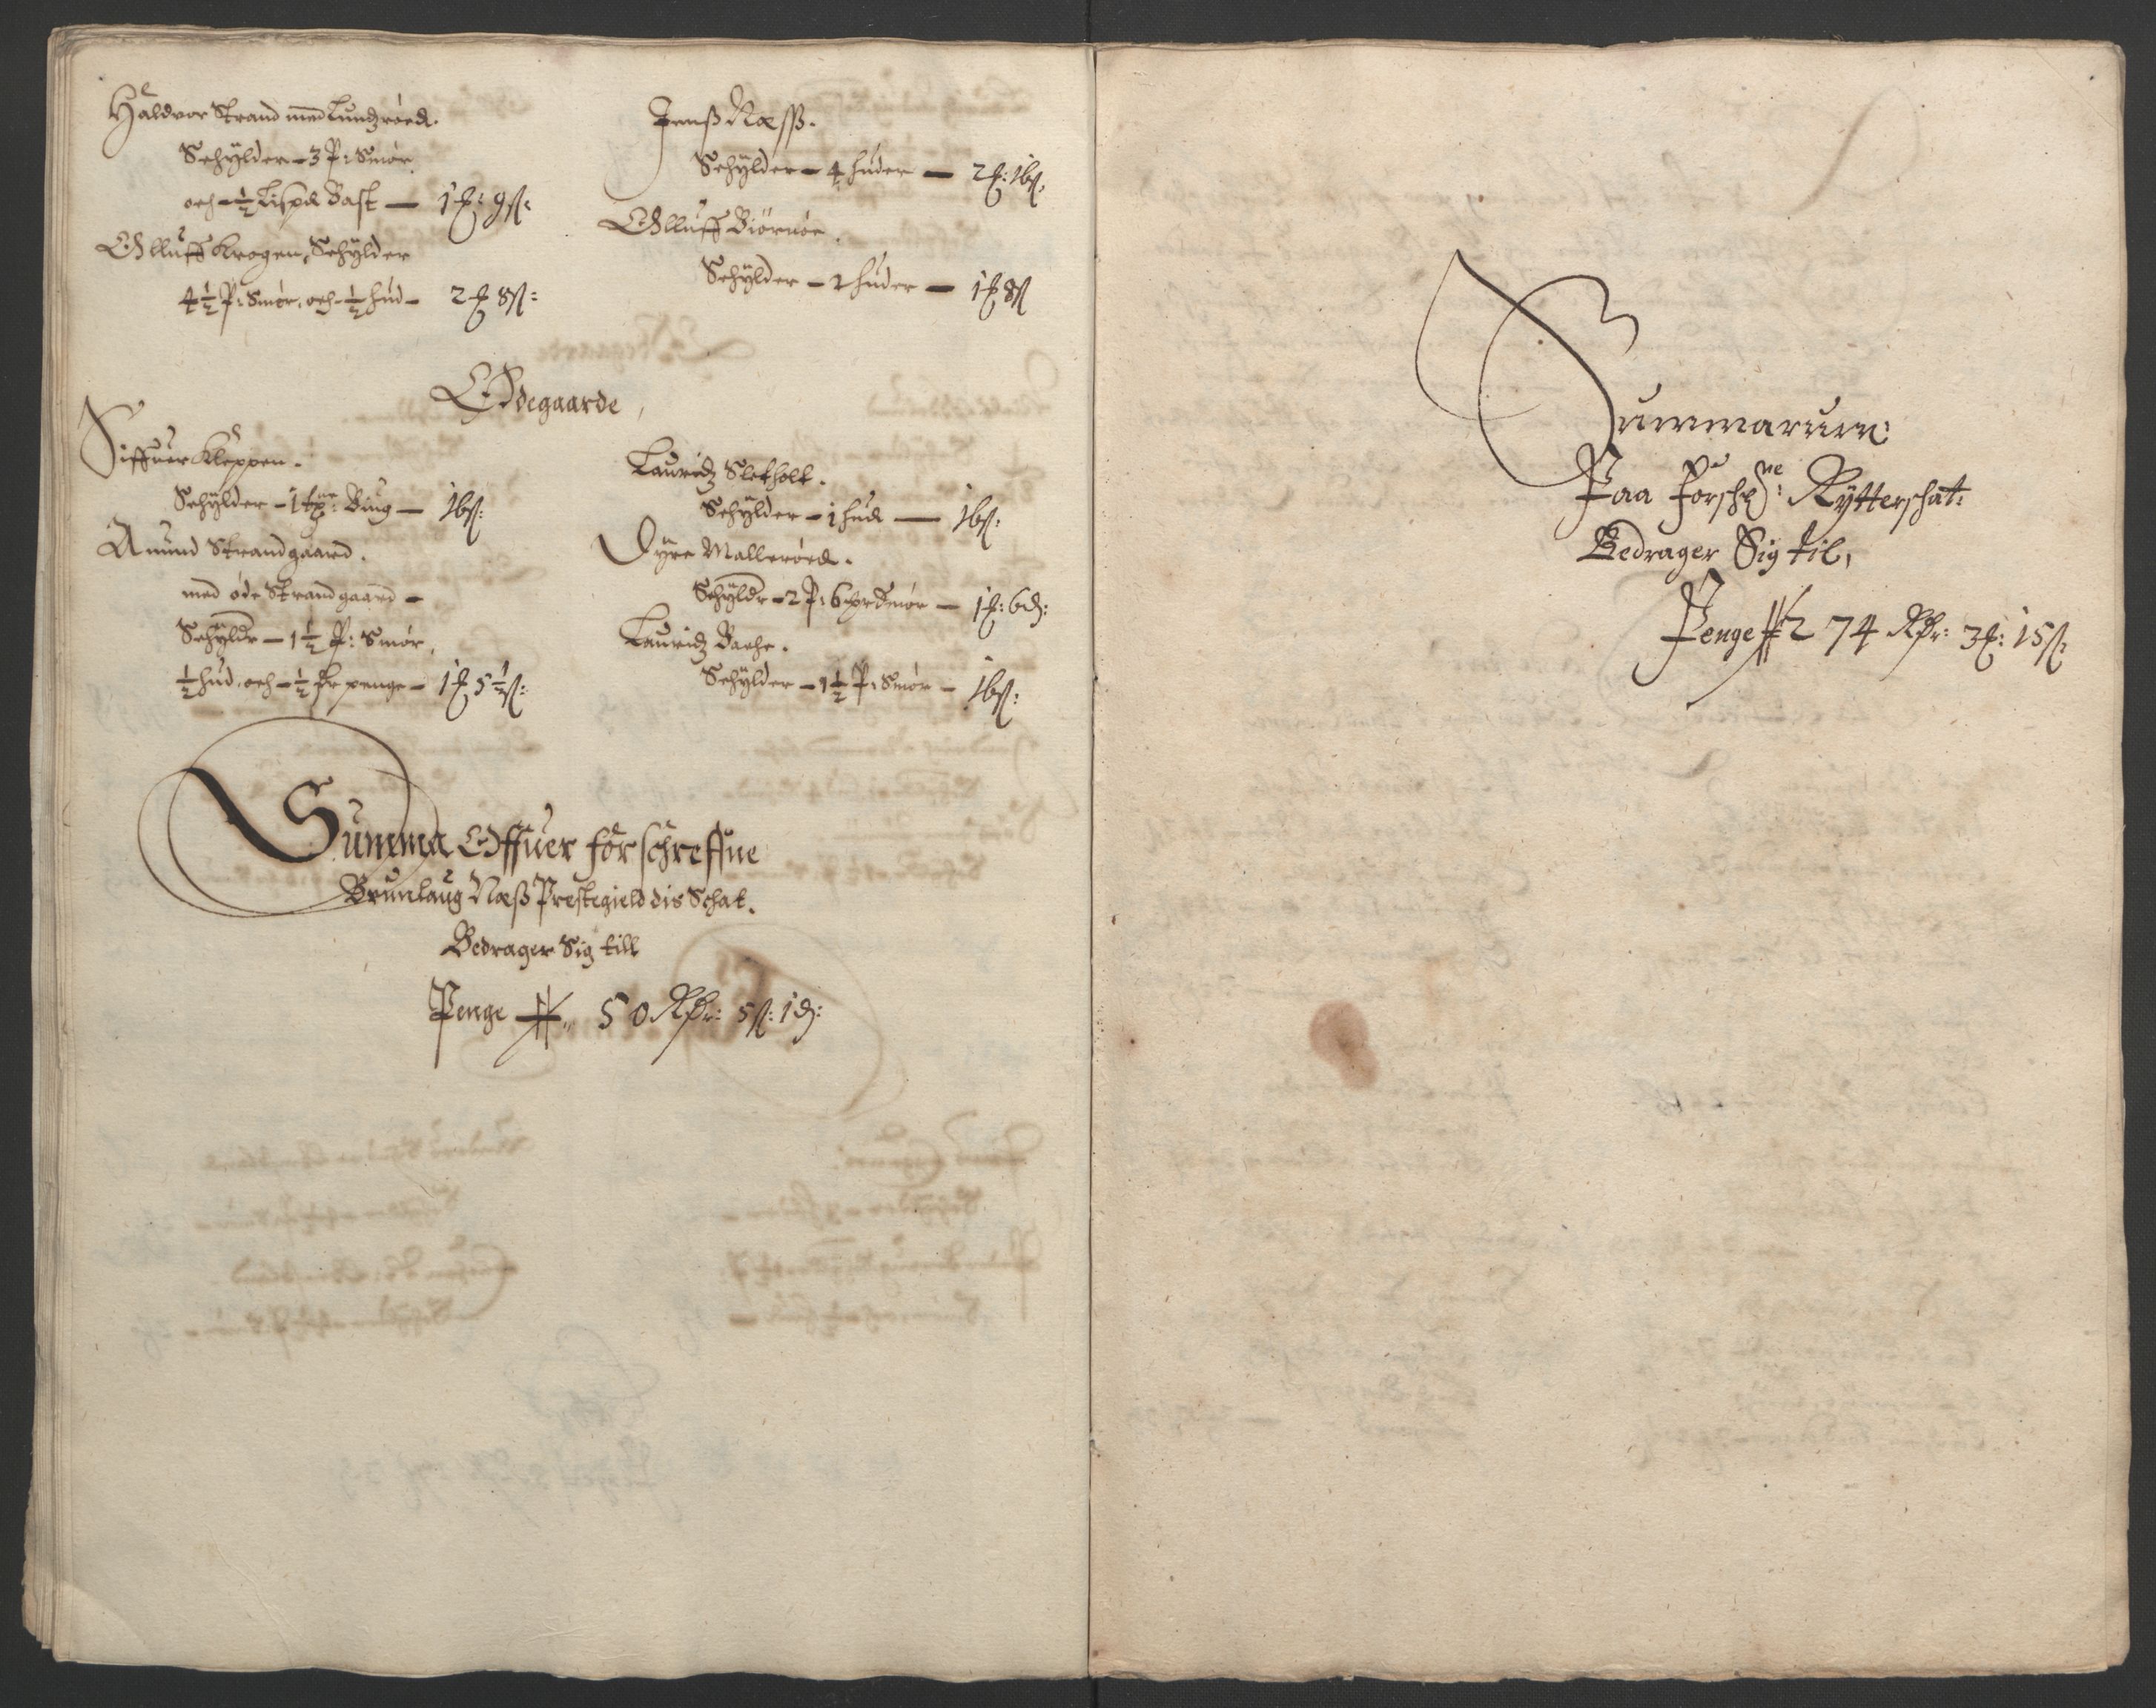 Haldvor Strand med Lundzröed.
Schÿlder - 3 P: Smör
och - ½ Lispd Bast — 1 ₰: 9 ß:
Olluff Krogen, Schÿlder
4½ P: Smör, och - ½ hud - 2 ₰ 8 ß:
Jenß Næss.
Schÿlder - 4 huder — 2 ₰: 16 ß:
Olluff Biörnöe.
Schÿlder - 2 huder — 1 ₰ 8 ß
Ödegaarde,
Siffuer Kleppen.
Schÿlder - 1 tne: Biug — 16 ß:
Anund Strandgaard.
med öde Strandgaard -
Schÿldr — 1½ P: Smör,
½ hud, och - ½ penge - 1 ₰ 5½ ß:
Lauridz Sletholt.
Schÿlder - 1 hud — 16 ß:
Dÿre Malleröed.
Schÿldr - 2 P: 6 Smör — 1 ₰: 6 d:
Lauridz Bache.
Schÿlder - 1½ P: Smör - 16 ß:
Summa Offuer forschreffne
Brunlaug Næß Prestegield dis Schat.
Bedrager Sig till
Penge 50 Rdr: 5 ß: 1 d:
Summarum
Paa Forschne: Rÿtterschat:
Bedrager Sig til,
Penge 274 Rdr: 3 ₰: 15 ß: